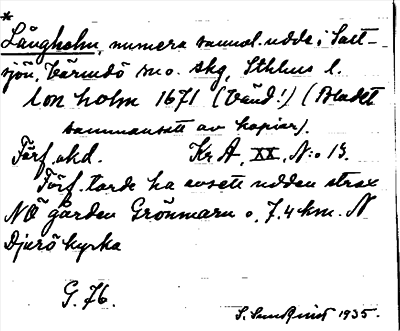 *
Långholm, numera sannol. udde i Salt-
sjön, Värmdö sn o. skg, Sthlms l.
lon holm 1671 (Vänd!) (Bladet
sammansatt av kopior).
Förf. okd. Kr A, XX, N:o 13.
Förf. torde ha avsett udden strax
NÖ gården Grönmaru o, 7.4 km. N
Djurö kyrka
G. 76.
S. Sundqvist 1935.